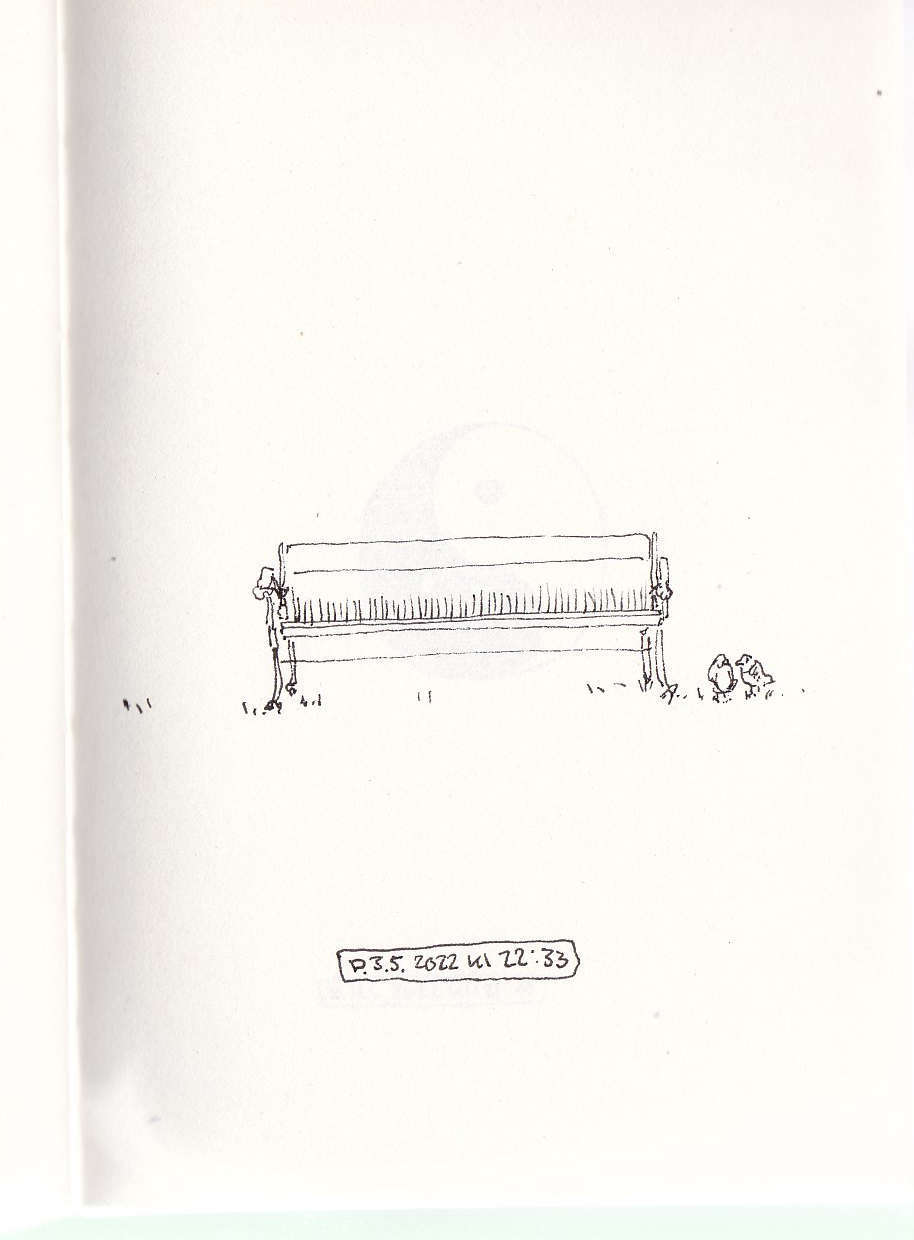 D. 3.5. 2022 kl 22:33